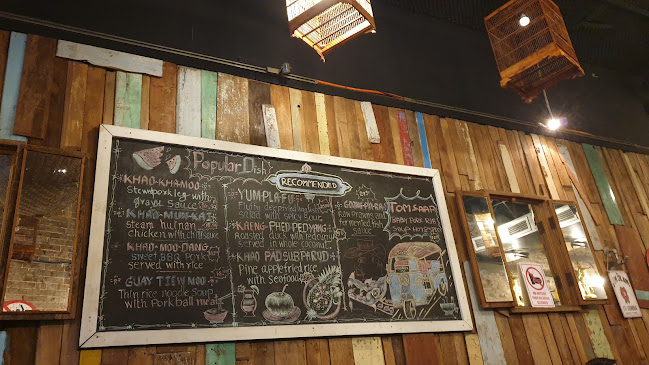 Popular Dish
KHAO-KHAMOO
Stew pork leg with
gravy Sauce
KHAO-MUN-KAI
Steam huinan
chicken with chilli sauce
KHAO-MOO-DANG
sweet BBQ Pork
served with rice
GUAY TIEW MOO
Thin rice noodle Soup
with Pork ball meat
RECOMMENDED
YUM PLA FU
Fluffy deep fried
salad with spicy sour
KAENG PHED PEDYANG
Roasted duck with red curry
served in whole coconut
KHAO PAD SUBPAROD
Pine apple fried rice
with Seafood
Raw Prawns
Sauce
TOM SAAP
Baby Pork Ribs
Soup